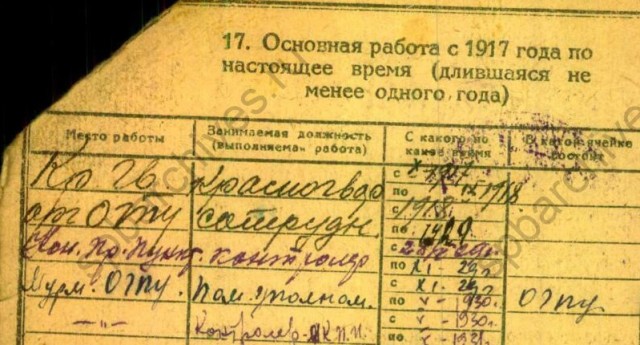 17. Основная работа с 1917 года по
настоящее время (длившаяся не
менее одного года)
Место работы
Занимаемая должность
(выполняемая работа)
С какого по
какое время
В какой ячейке
состоит
Кр Гв Красногвар с X 1917
по IX 1918
орг ОГПУ сотрудн с 1918
по 1929
Кон. Пр. Пункт. контролер
по XI - 29г
Мурм. ОГПУ. Пом. уполном. с XI - 29г ОГПУ
по V - 1930г.
—"— Контролер ККПП с V - 1930г.
по X - 1931.
spbarchives.ru